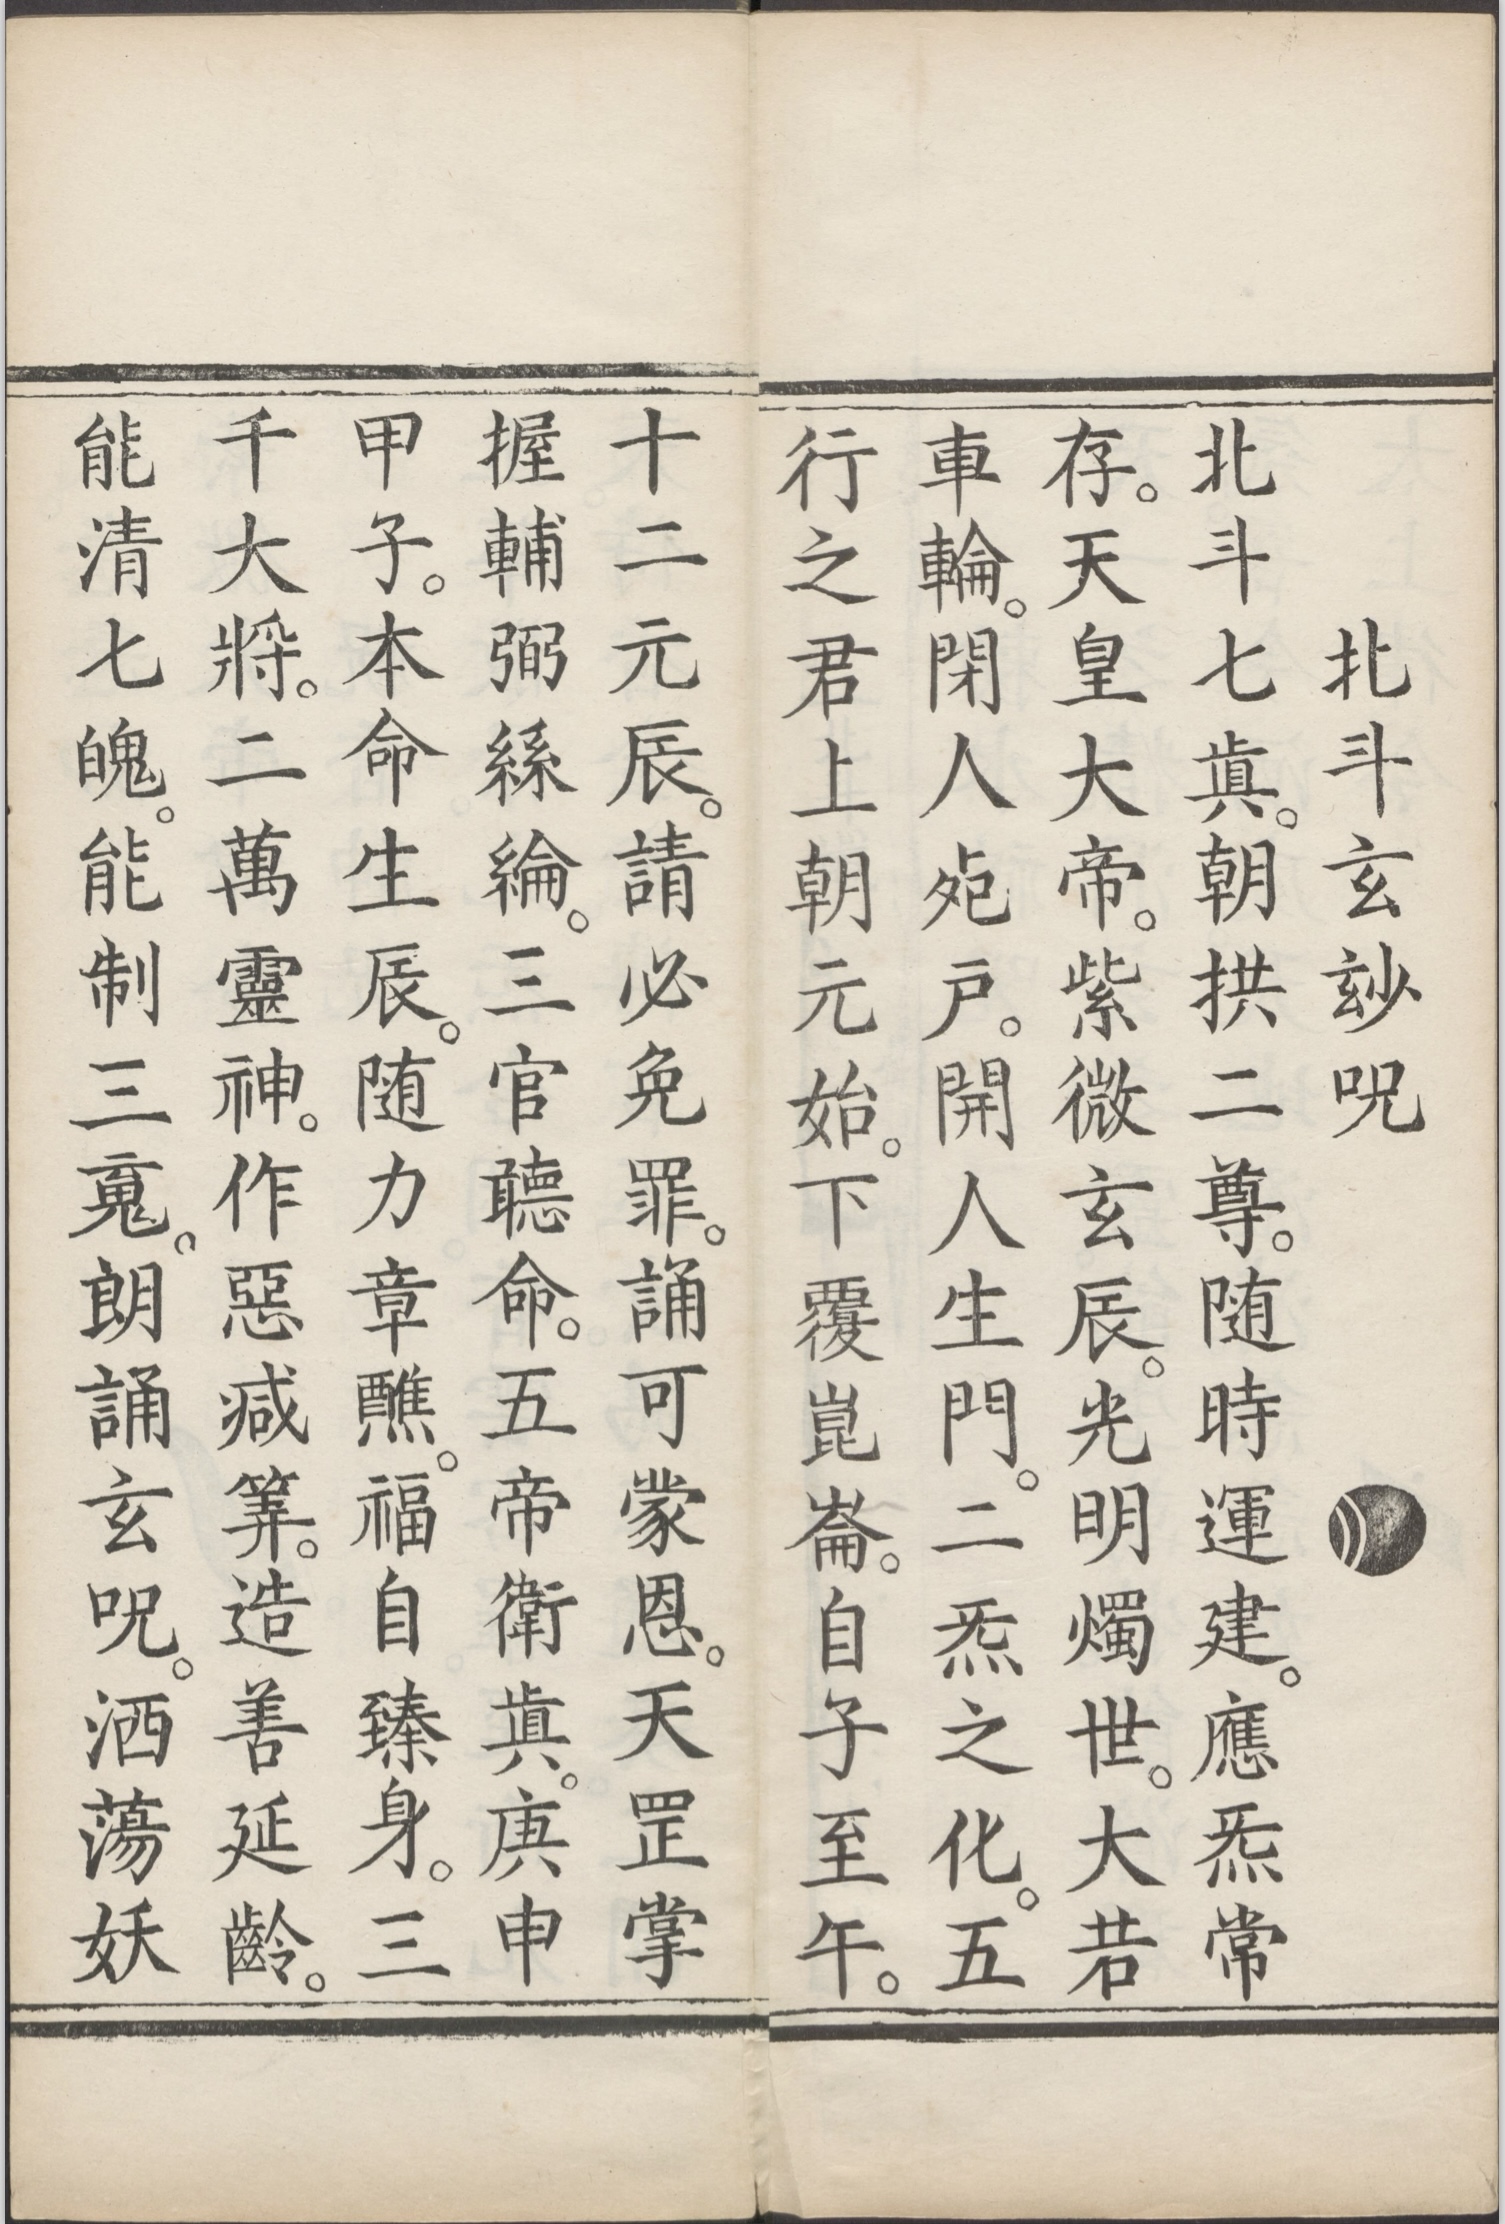 北斗玄玅呪
北斗七眞。朝拱二尊。随時運建。應炁常
存。天皇大帝。紫微玄辰。光明燭世。大若
車輪。閉人死戶。開人生門。二炁之化。五
行之君上朝元始。下覆崑崙。自子至午。
十二元辰。請必免罪。誦可蒙恩。天罡掌
握輔弼絲綸。三官聽命。五帝衛眞。庚申
甲子。本命生辰。随力章醮。福自臻身。三
千大將。二萬靈神。作惡減筭。造善延齡。
能清七魄。能制三䰟。朗誦玄呪。洒蕩妖